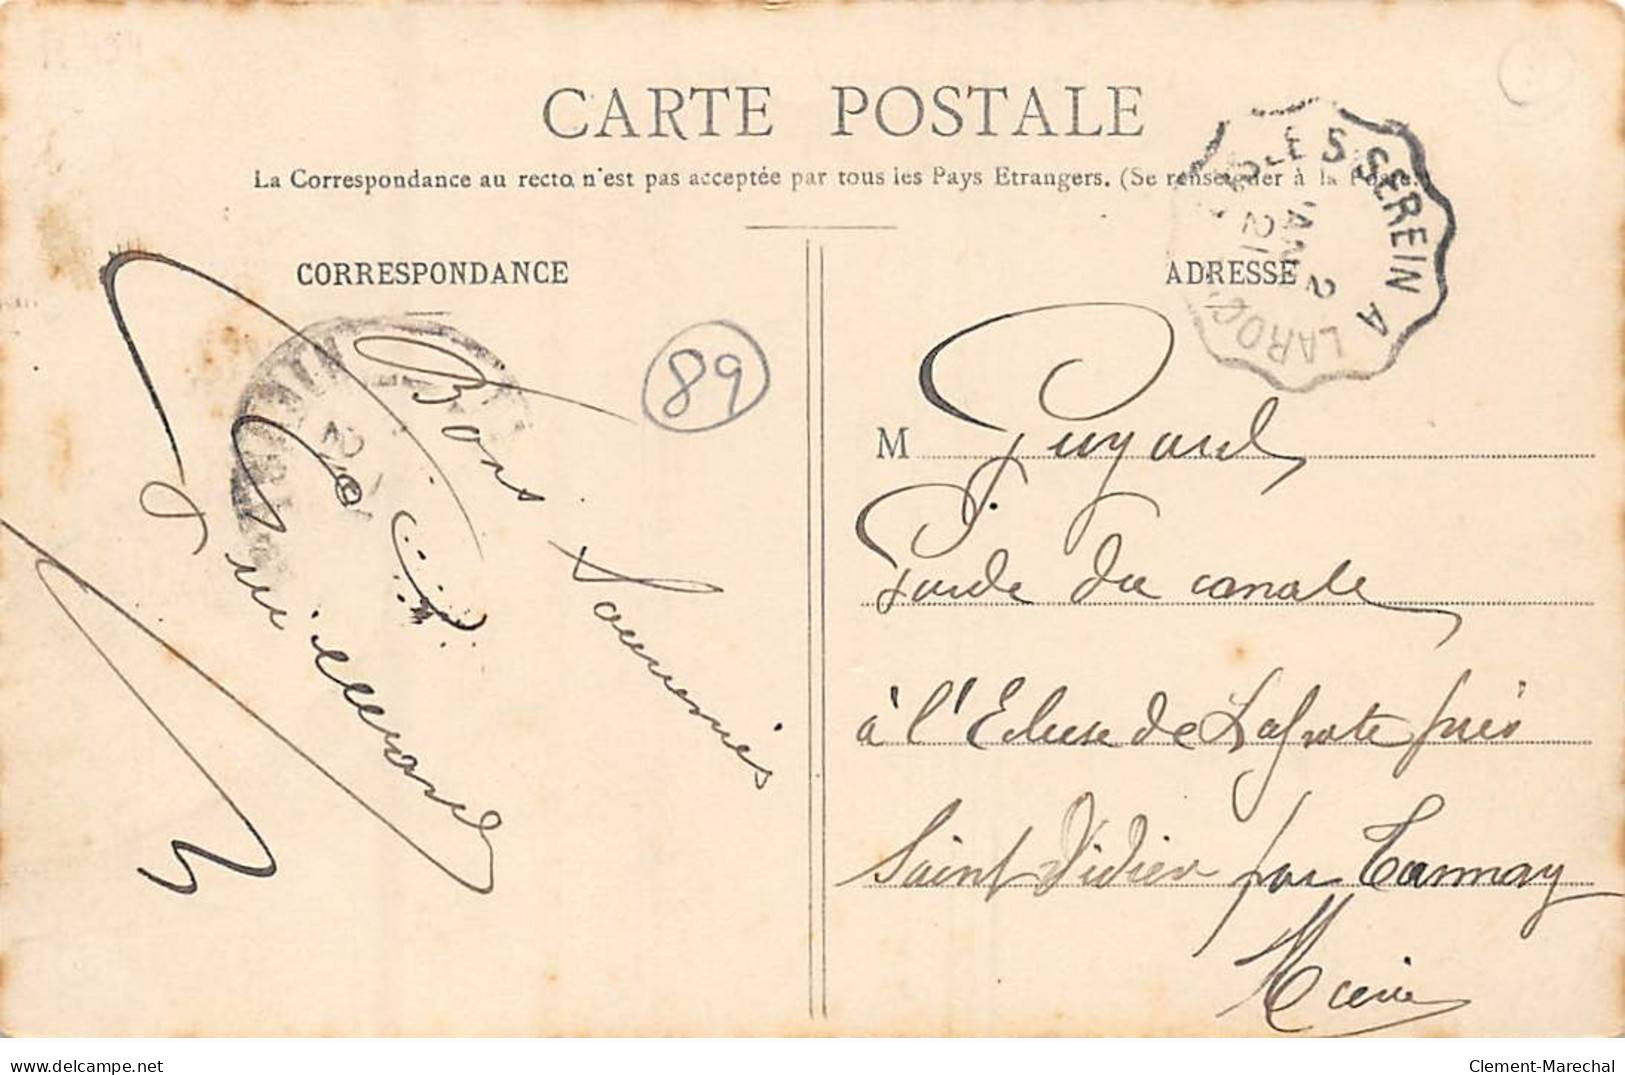 CARTE POSTALE
La Correspondance au recto n'est pas acceptée par tous les Pays Etrangers. (Se renseigner à la Poste.)
CORRESPONDANCE
Bons Souvenirs
89
ADRESSE
L'ISLE S SEREIN A LAROCHE
M Guyard
Garde du canale
à l'Ecluse de près
Saint Didier par Tannay
Nièvre
delcampe.net
Clement-Marechal